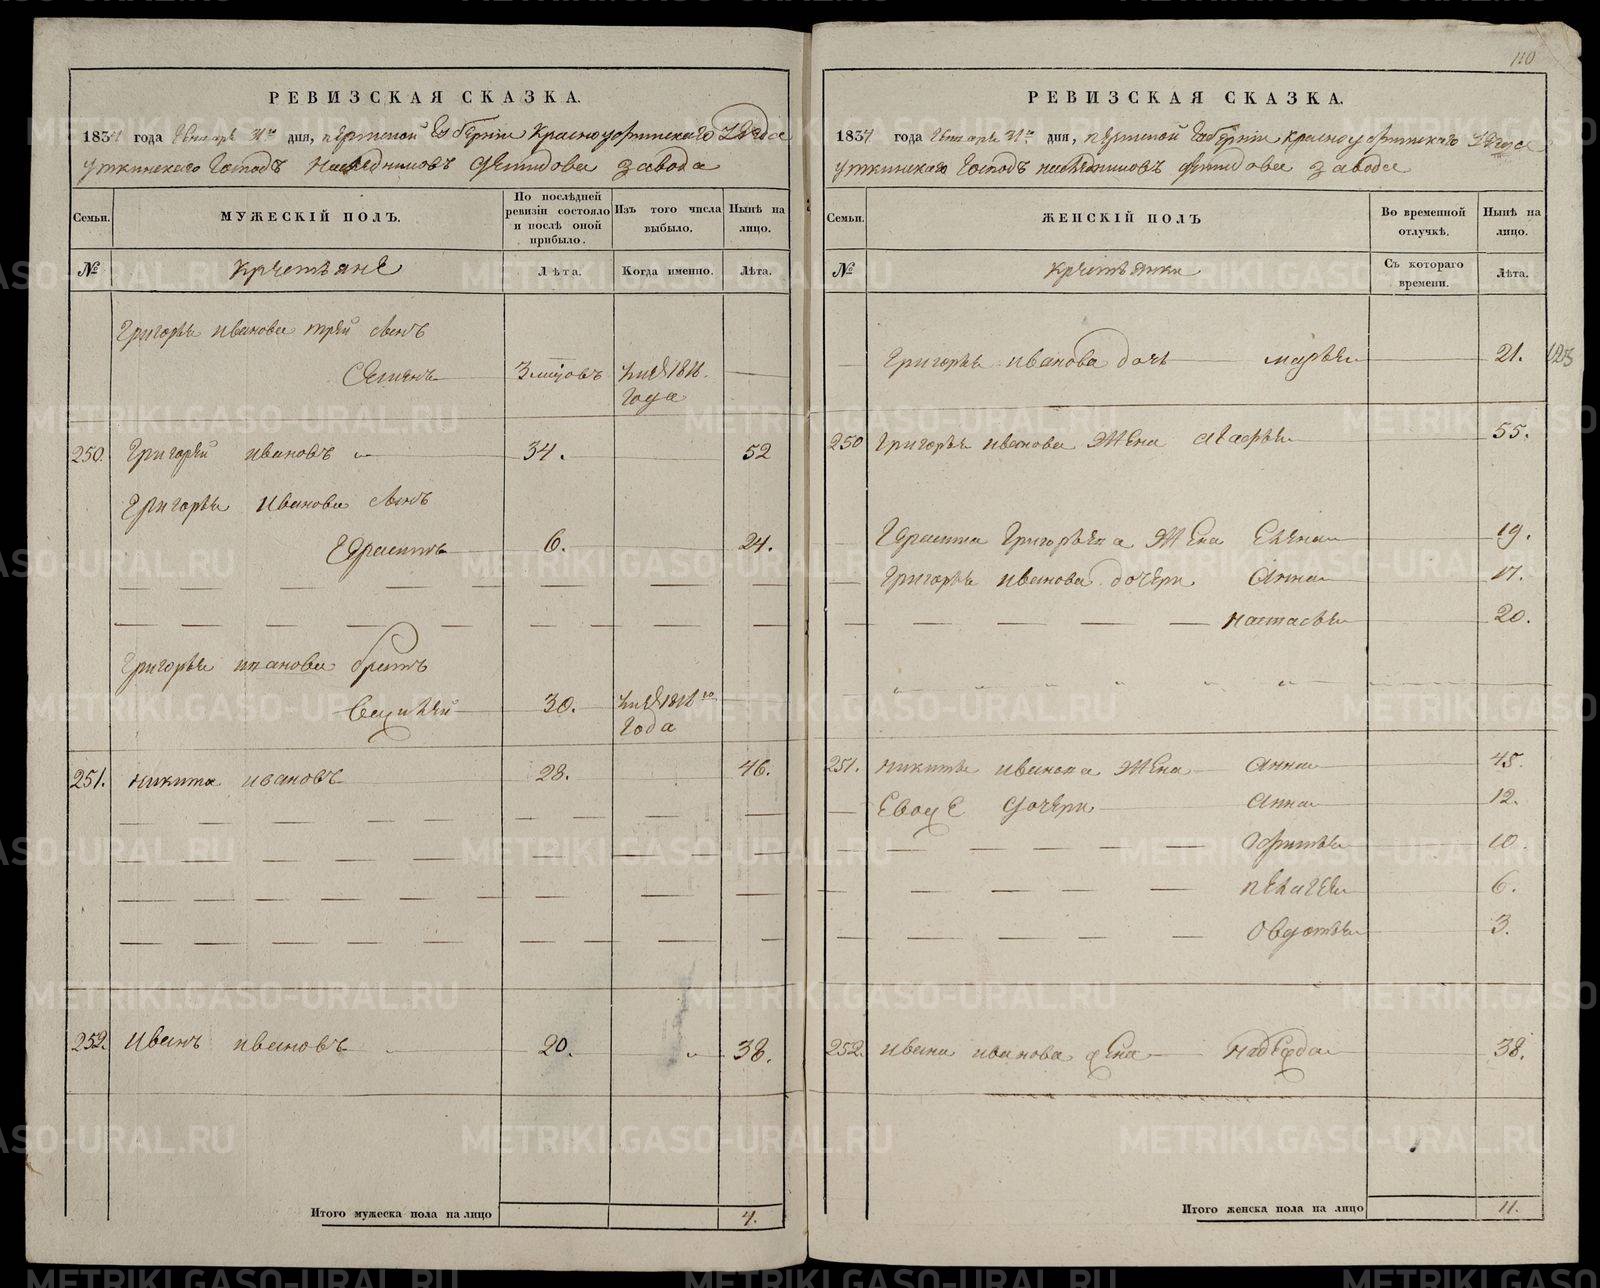 110
РЕВИЗСКАЯ СКАЗКА.
1834 года Генваря 31го дня, пермской Губернiи Красноуфимскаго Уезда
Уткинскаго Господъ Наследниковъ Демидова завода
Семьи.
МУЖЕСКІЙ ПОЛЪ.
По послѣдней ревизіи состояло и послѣ оной прибыло.
Изъ того числа выбыло.
Нынѣ на лицо.
№
Крестьяне
Лѣта.
Когда именно.
Лѣта.
Григорья иванова
Семенъ 3 1816.
Года
250. Григорей ивановъ 34. 52
Григорья Иванова сынъ
Ефрантъ 6. 24.
Григорья иванова братъ
30. 1816го
Года
251. Никита ивановъ 28. 46.
252. Иванъ ивановъ 20. 38.
Итого мужеска пола на лицо 4.
РЕВИЗСКАЯ СКАЗКА.
1834 года Генваря 31го дня, пермской Губернiи Красноуфимскаго Уезда
Уткинскаго Господъ наследниковъ Демидова завода
Семьи.
ЖЕНСКІЙ ПОЛЪ
Во временной отлучкѣ.
Нынѣ на лицо.
№
крестьянки
Съ котораго времени.
Лѣта.
Григорья иванова дочь марья 21. 123
250 Григорья иванова жена 55.
Григорьева жена Елена 19.
Григорья иванова дочери Анна 17.
настасья 20.
251. никиты иванова жена Анна 45.
Евоже дочери Анна 12.
10.
пелагея 6.
Овдотья 3.
252. ивана иванова жена надежда 38.
Итого женска пола на лицо 11.
METRIKI.GASO-URAL.RU